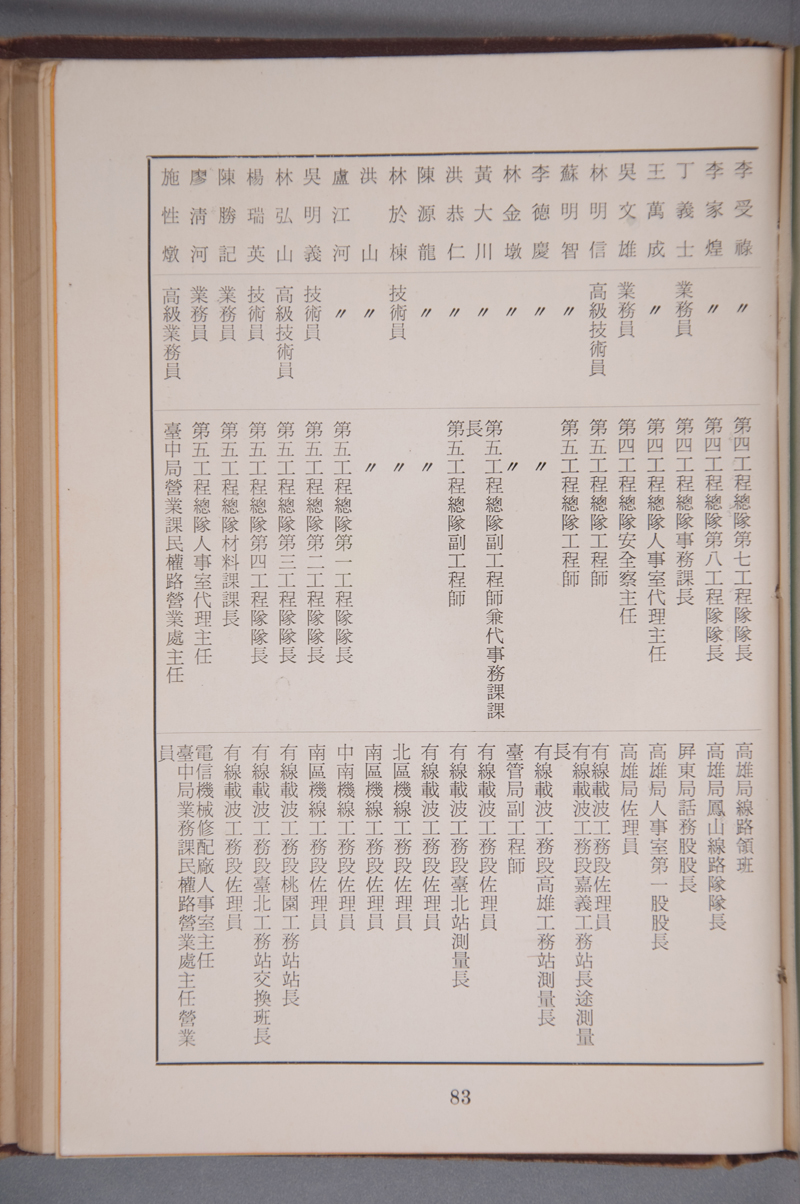 李受祿 〃 第四工程總隊第七工程隊隊長 高雄局線路領班
李家煌 〃 第四工程總隊第八工程隊隊長 高雄局鳳山線路隊隊長
丁義士 業務員 第四工程總隊事務課長 屏東局話務股股長
王萬成 〃 第四工程總隊人事室代理主任 高雄局人事室第一股股長
吳文雄 業務員 第四工程總隊安全察主任 高雄局佐理員
林明信 高級技術員 第五工程總隊工程師 有線載波工務段佐理員
蘇明智 〃 第五工程總隊工程師 有線載波工務段嘉義工務站長途測量長
李德慶 〃 〃 有線載波工務段高雄工務站測量長
林金墩 〃 〃 臺管局副工程師
黃大川 〃 第五工程總隊副工程師兼代事務課課長 有線載波工務段佐理員
洪恭仁 〃 第五工程總隊副工程師 有線載波工務段臺北站測量長
陳源龍 〃 〃 有線載波工務段佐理員
林於棟 技術員 〃 北區機線工務段佐理員
洪山 〃 〃 南區機線工務段佐理員
盧江河 〃 第五工程總隊第一工程隊隊長 中南機線工務段佐理員
吳明義 技術員 第五工程總隊第二工程隊隊長 南區機線工務段佐理員
林弘山 高級技術員 第五工程總隊第三工程隊隊長 有線載波工務段桃園工務站站長
楊瑞英 技術員 第五工程總隊第四工程隊隊長 有線載波工務段臺北工務站交換班長
陳勝記 業務員 第五工程總隊材料課課長 有線載波工務段佐理員
廖清河 業務員 第五工程總隊人事室代理主任 電信機械修配廠人事室主任
施性燉 高級業務員 臺中局營業課民權路營業處主任 臺中局業務課民權路營業處主任營業員
83